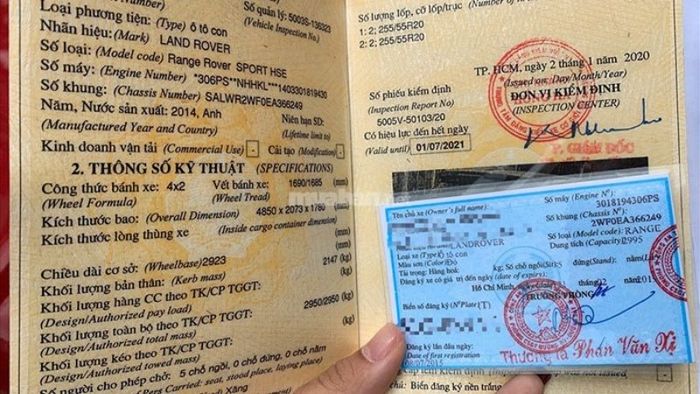 Loại phương tiện: (Type) ô tô con
(Vehicle Inspection No.)
Số quản lý: 5003S-136323
Nhãn hiệu: (Mark) LAND ROVER
Số loại: (Model code) Range Rover SPORT HSE
Số máy: (Engine Number) *306PS**NHHKL***1403301819430
Số khung: (Chassis Number) SALWR2WF0EA366249
Năm, Nước sản xuất: 2014, Anh
Niên hạn SD:
(Manufactured Year and Country)
(Lifetime limit to)
Kinh doanh vận tải (Commercial Use) - Cải tạo (Modification) -
2. THÔNG SỐ KỸ THUẬT (SPECIFICATIONS)
Công thức bánh xe: 4x2 Vết bánh xe: 1690/1685 (mm)
(Wheel Formula) (Wheel Tread)
Kích thước bao: (Overall Dimension) 4850 x 2073 x 1780 (mm)
Kích thước lòng thùng xe (Inside cargo container dimension) (mm)
Chiều dài cơ sở: (Wheelbase) 2923 (mm)
Khối lượng bản thân: (Kerb mass) 2147 (kg)
Khối lượng hàng CC theo TK/CP TGGT: (kg)
(Design/Authorized pay load)
Khối lượng toàn bộ theo TK/CP TGGT: 2950/2950 (kg)
(Design/Authorized total mass)
Khối lượng kéo theo TK/CP TGGT: (kg)
(Design/Authorized towed mass)
Số người cho phép chở: 5 chỗ ngồi, 0 chỗ đứng, 0 chỗ nằm
of Pers Carried: seat, stood place, laying place)
Xăng
Số lượng lốp, cỡ lốp/trục
1: 2; 255/55R20
2: 2; 255/55R20
TP. HCM, ngày 2 tháng 1 năm 2020
(Issued on: Day/Month/Year)
Số phiếu kiểm định
ĐƠN VỊ KIỂM ĐỊNH
(Inspection Report No)
(INSPECTION CENTER)
5005V-50103/20
Có hiệu lực đến hết ngày
(Valid until) 01/07/2021
P. GIÁM ĐỐC
Tên chủ xe (Owner's full name):
Số máy (Engine N°):
3018194306PS
Số khung (Chassis N°):
2WF0EA366249
LANDROVER
Số loại (Model code): RANGE
Loại xe (Type): tô con
Dung tích (Capacity): 2995
Màu sơn (Color):
Tải trọng: Hàng hoá: kg; Số chỗ ngồi (Sit): 5 đứng (Stand):
Đăng ký xe có giá trị đến ngày (date of expiry):
Hồ Chí Minh,
TRƯỞNG PHÒNG
Biển số đăng ký (N° Plate)
Đăng ký lần đầu ngày:
Date of first registration
08/07/2015
Thượng tá Phán Văn Xị
chú: Biển đăng ký nền trắng